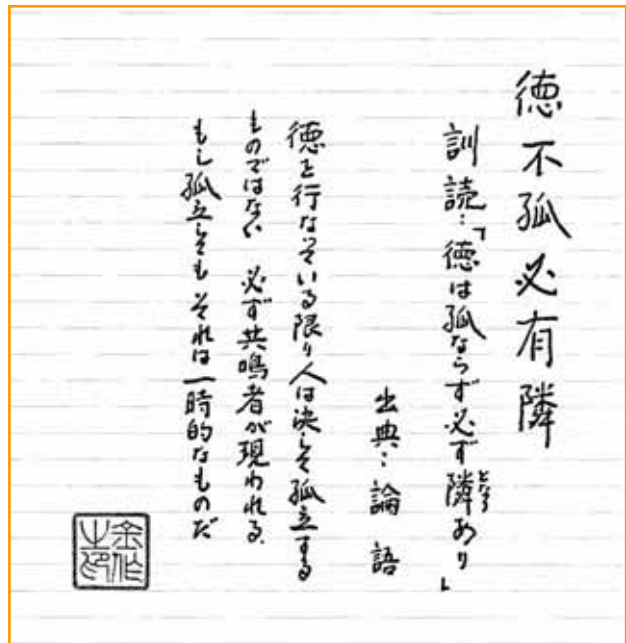 徳不孤必有隣
訓読：「徳は孤ならず必ず隣あり」
となり
出典：論語
徳を行なっている限り人は決して孤立する
ものではない 必ず共鳴者が現われる。
もし孤立しても それは一時的なものだ